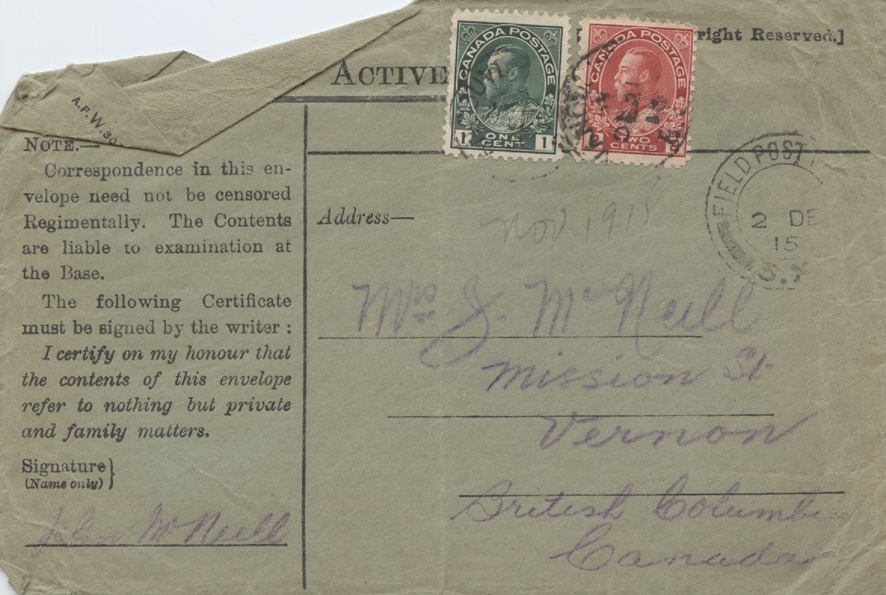 right Reserved.]
ACTIVE
A.F.W.30
CANADA POSTAGE
1 ONE CENT 1
CANADA POSTAGE
TWO CENTS
NOTE.—
Correspondence in this en-
velope need not be censored
Regimentally. The Contents
are liable to examination at
the Base.
The following Certificate
must be signed by the writer :
I certify on my honour that
the contents of this envelope
refer to nothing but private
and family matters.
Signature}
(Name only)
John McNeill
Address—
Nov 1915
FIELD POST
2 DE
15
Mrs J. McNeill
Mission St
Vernon
British Columbia
Canada